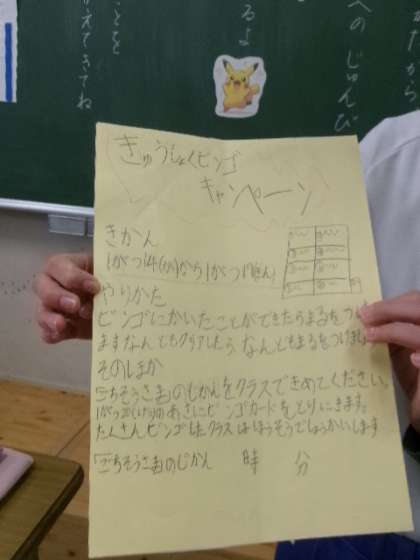 きゅうしょくビンゴ
キャンペーン
きかん
1がつ14(か)から1がつ17(きん)
やりかた
ビンゴにかいたことができたらまるをつけ
ますなんどもクリアしたらなんどもまるをつけ
そのほか
「ごちそうさま」のじかんをクラスできめてください。
1がつ20(げつ)のあさにビンゴカードをとりにきます。
たくさんビンゴしたクラスはほうそうでしょうかいします
「ごちそうさま」のじかん 時 分
へのじゅんび
るよ
ことを
かえてきてね